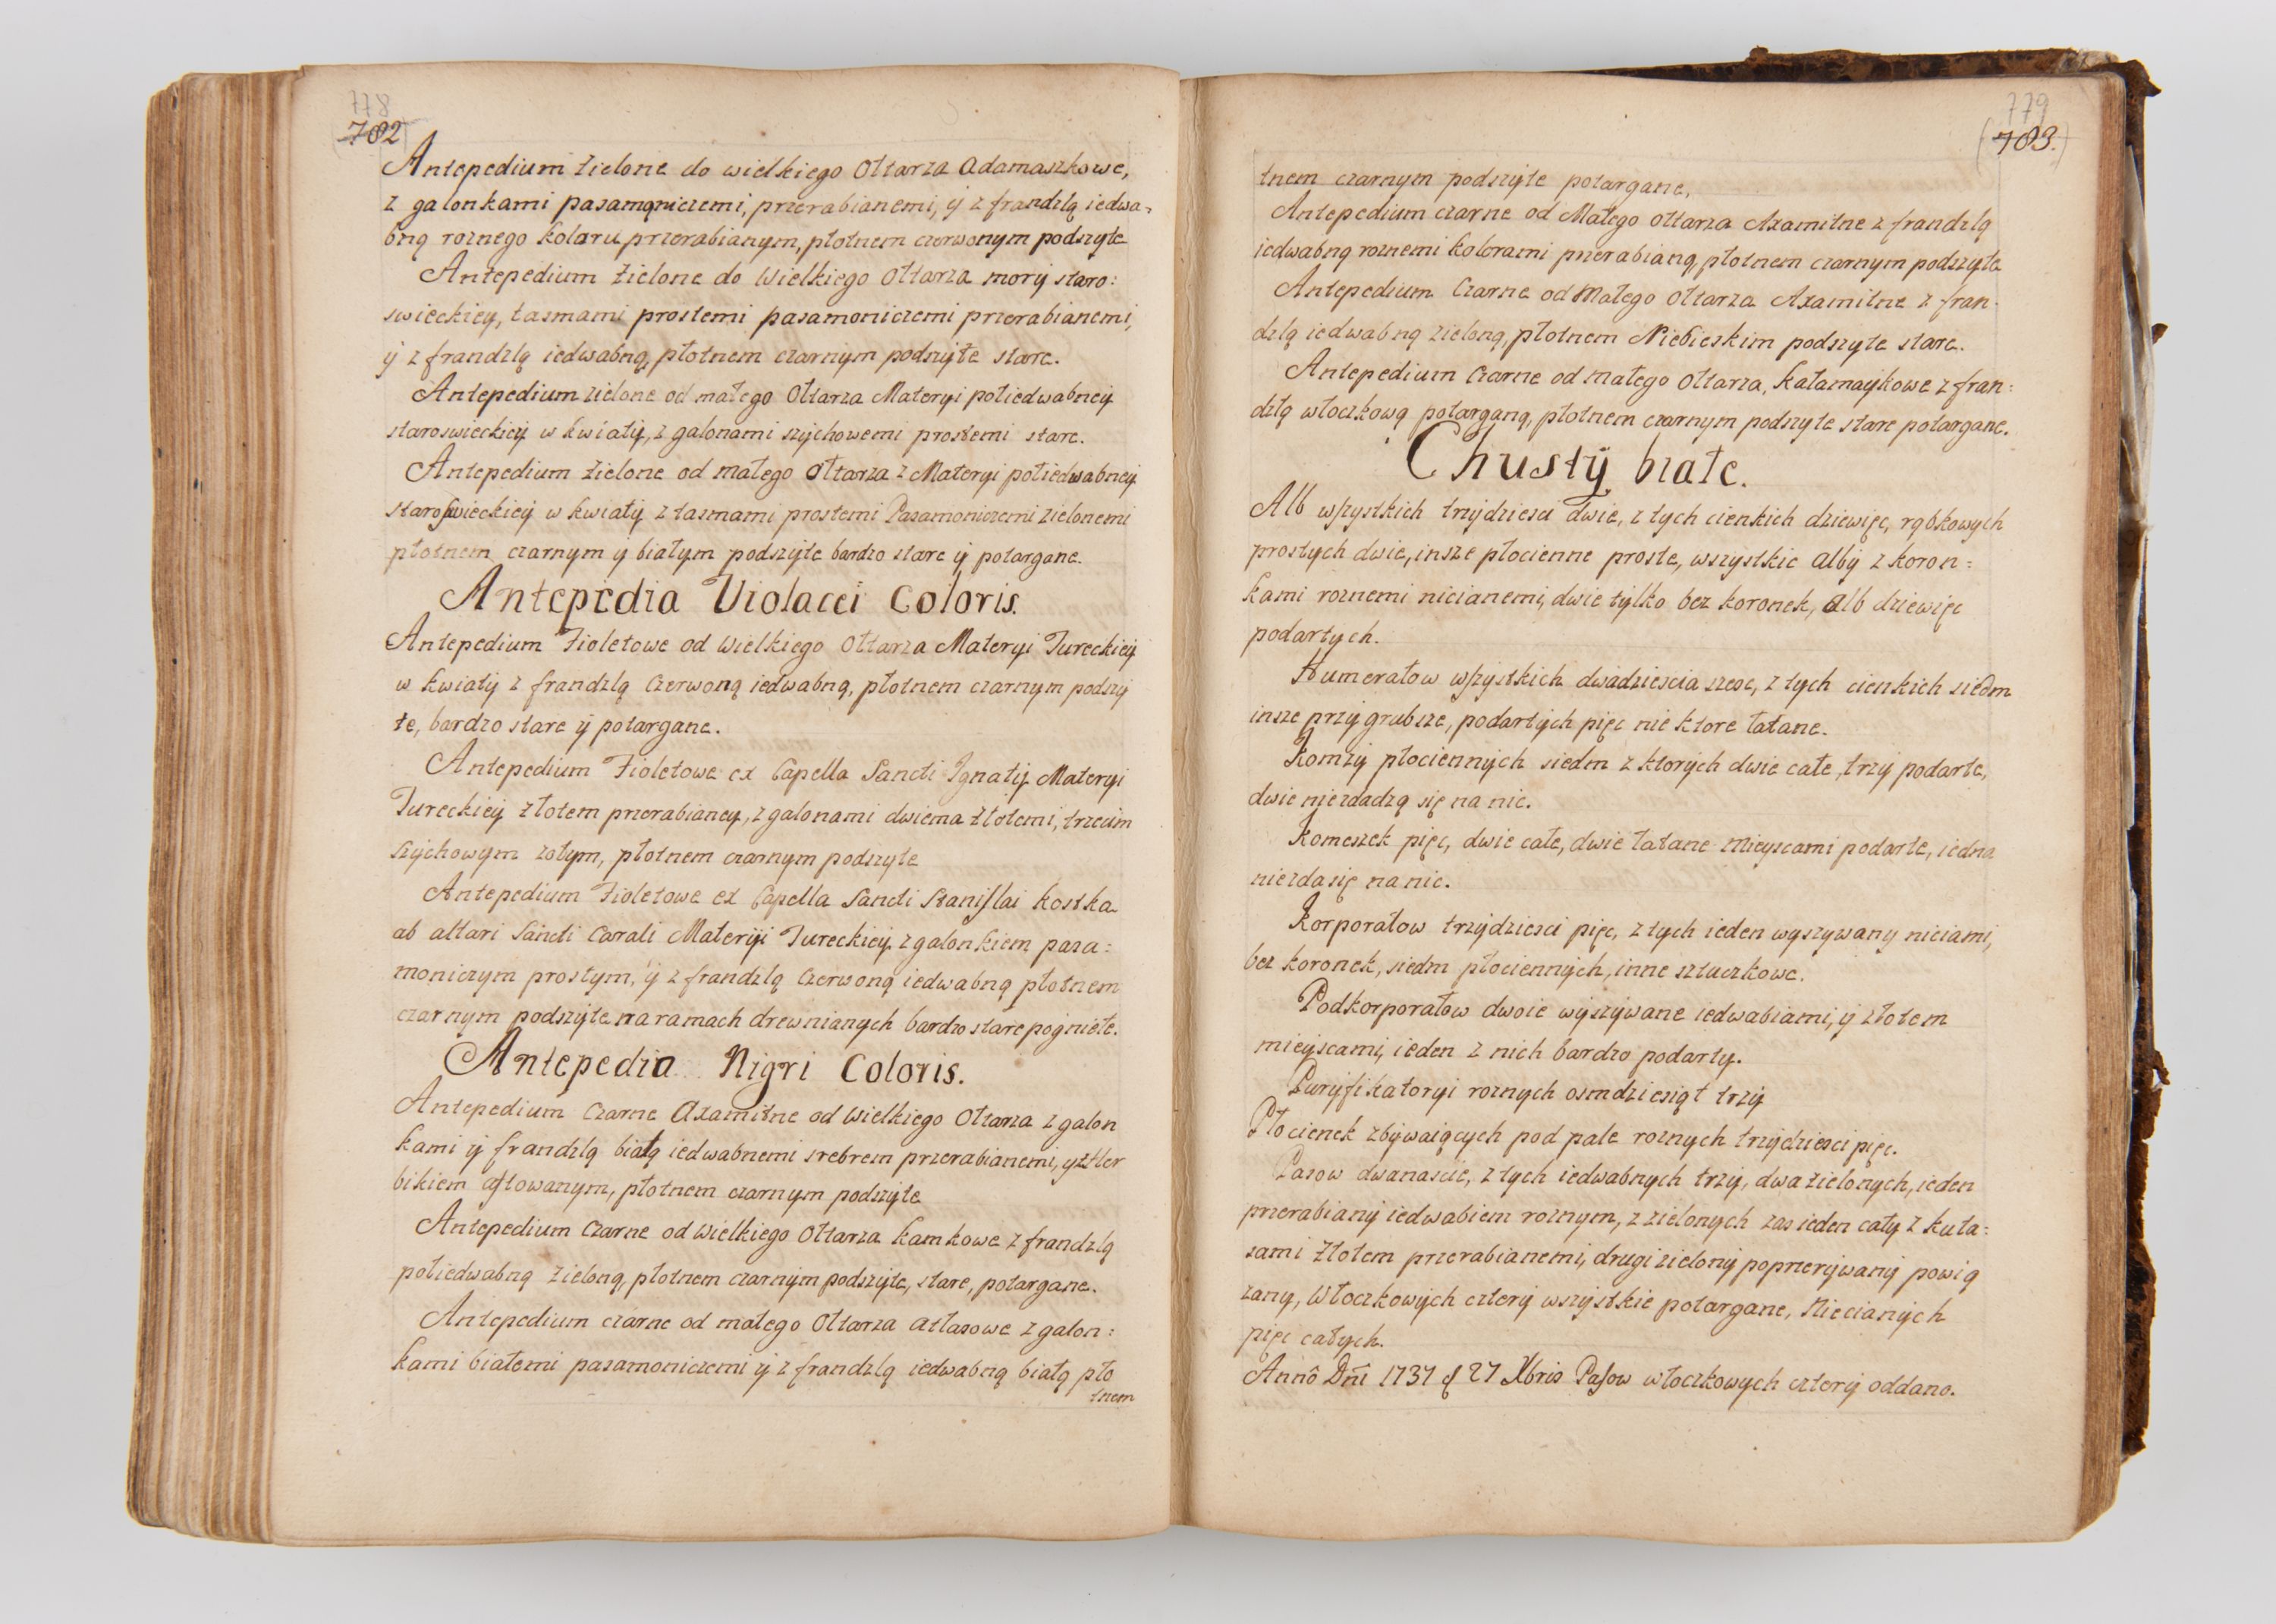 778
702
Antepedium zielone do wielkiego Ołtarza Adamaszkowe,
z galonkami pasamoniczemi, przerabianemi, ÿ z frandzlą iedwa-
bną roznego kolaru przerabianym, płotnem czerwonym podszyte
Antepedium zielone do Wielkiego Ołtarza morÿ staro:
swieckieÿ, tasmami prostemi pasamoniczemi przerabianemi,
ÿ z frandzlą iedwabną, płotnem czarnym podszÿte stare.
Antepedium zielone od małego Ołtarza Materyi połiedwabneÿ
staroswieckieÿ w kwiatÿ, z galonami szÿchowemi prostemi stare.
Antepedium zielone od małego Ołtarza z Materyi połiedwabneÿ
Staroswieckieÿ w kwiatÿ z tasmami prostemi Pasamoniczemi zielonemi
płotnem czarnym ÿ białym podszÿte bardzo stare ÿ potargane.
Antepedia Violacei Coloris.
Antepedium Fioletowe od Wielkiego Ołtarza Materyi Tureckieÿ
w kwiatÿ z frandzlą czerwoną iedwabną, płotnem czarnym podszÿ
te, bardzo stare ÿ potargane.
Antepedium Fioletowe ex Capella Sancti Ignatÿ Materyi
Tureckieÿ złotem przerabianeÿ, z galonami dwiema złotemi, trzecim
szÿchowym zołym, płotnem czarnym podszyte
Antepedium Fioletowe ex Capella Sancti Stanislai Kostka
ab altari Sancti Carali Materÿi Tureckieÿ z galonkiem pasa:
moniczym prostym, ÿ z frandzlą Czerwoną iedwabną płotnem
czarnym podszÿte na ramach drewnianych bardzo stare pogniełe.
Antepedia Nigri Coloris.
Antepedium Czarne Axamitne od Wielkiego Ołtarza z galon
kami ÿ frandzlą białą iedwabnemi srebrem przerabianemi, y z Her
bikiem aftowanym, płotnem czarnym podszÿte
Antepedium Czarne od Wielkiego Ołtarza kamkowe z frandzlą
połiedwabną zieloną, płotnem czarnÿm podszÿte, stare, potargane.
Antepedium czarne od małego Ołtarza atłasowe z galon:
kami białemi pasamoniczemi ÿ z frandzlą iedwabną białą pło
tnem
779
(703.)
tnem czarnym podszÿte potargane.
Antepedium czarne od Małego Ołtarza Axamitne z frandzlą
iedwabną roznemi kolorami przerabianą, płotnem czarnym podszyte
Antepedium Czarne od Małego Ołtarza Axamitne z fran-
dzlą iedwabną zieloną, płotnem Niebieskim podszyte stare.
Antepedium Czarne od małego Ołtarza, kałamaÿkowe z fran:
dzlą włoczkową potarganą, płotnem czarnym podszyte stare potargane.
Chustÿ białe.
Alb wszystkich trzÿdziesci dwie, z tych cienkich dziewięc, rąbkowych
prostych dwie, insze płocienne proste, wszystkie Albÿ z koron:
kami roznemi nicianemi, dwie tÿlko bez koronek, Alb dziewięc
podartych.
Humerałow wszystkich dwadziescia szesc, z tych cienkich siedm
insze przÿgrubsze, podartÿch pięc nie ktore łatane.
Komzÿ płociennÿch siedm z ktorÿch dwie całe, trzÿ podarte,
dwie niezdadzą się na nic.
Komeszek pięc, dwie całe, dwie łatane mieyscami podarte, iedna
niezda się na nic.
Korporałow trzÿdziesci pięc, z tych ieden wyszywany niciami,
bez koronek, siedm płociennÿch, inne sztuczkowe.
Podkorporałow dwoie wÿszÿwane iedwabiami, ÿ złotem
mieÿscami, ieden z nich bardzo podarty.
Purÿfikatorÿi roznych osmdziesiąt trzÿ
Płocienek zbÿwaiących pod pale roznych trzÿdziesci pięc.
Pasow dwanascie, z tych iedwabnych trzÿ, dwa zielonych, ieden
przerabianÿ iedwabiem roznym, z zielonych zas ieden całÿ z kuta:
sami złotem przerabianemi, drugi zielonÿ poprzerÿwanÿ powią
zany, Włoczkowÿch czterÿ wszÿstkie potargane, Niecianÿch
pięc całych.
Annô Dnî 1737 d 27 Xbris Pasow włoczkowych czterÿ oddano.